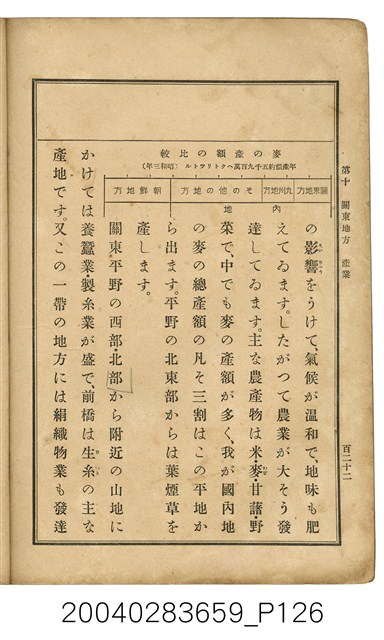 第十 關東地方 產業
百二十二
の影響をうけて、氣候が温和で、地味も肥
えてゐます。したがつて農業が大そう發
達してゐます。主な農產物は米・麥・甘藷・野
菜で、中でも麥の產額が多く、我が國內地
の麥の總產額の凡そ三割はこの平地か
ら出ます。平野の北東部からは葉煙草を
產します。
關東平野の西部・北部から附近の山地に
かけては養蠶業・製糸業が盛で、前橋は生糸の主な
產地です。又この一帶の地方には絹織物業も發達
麥の產額の比較
年產額約五千九百萬ヘクトリツトル(昭和三年)
關東地方
九州地方
その他の地方
朝鮮地方
內地
20040283659_P126